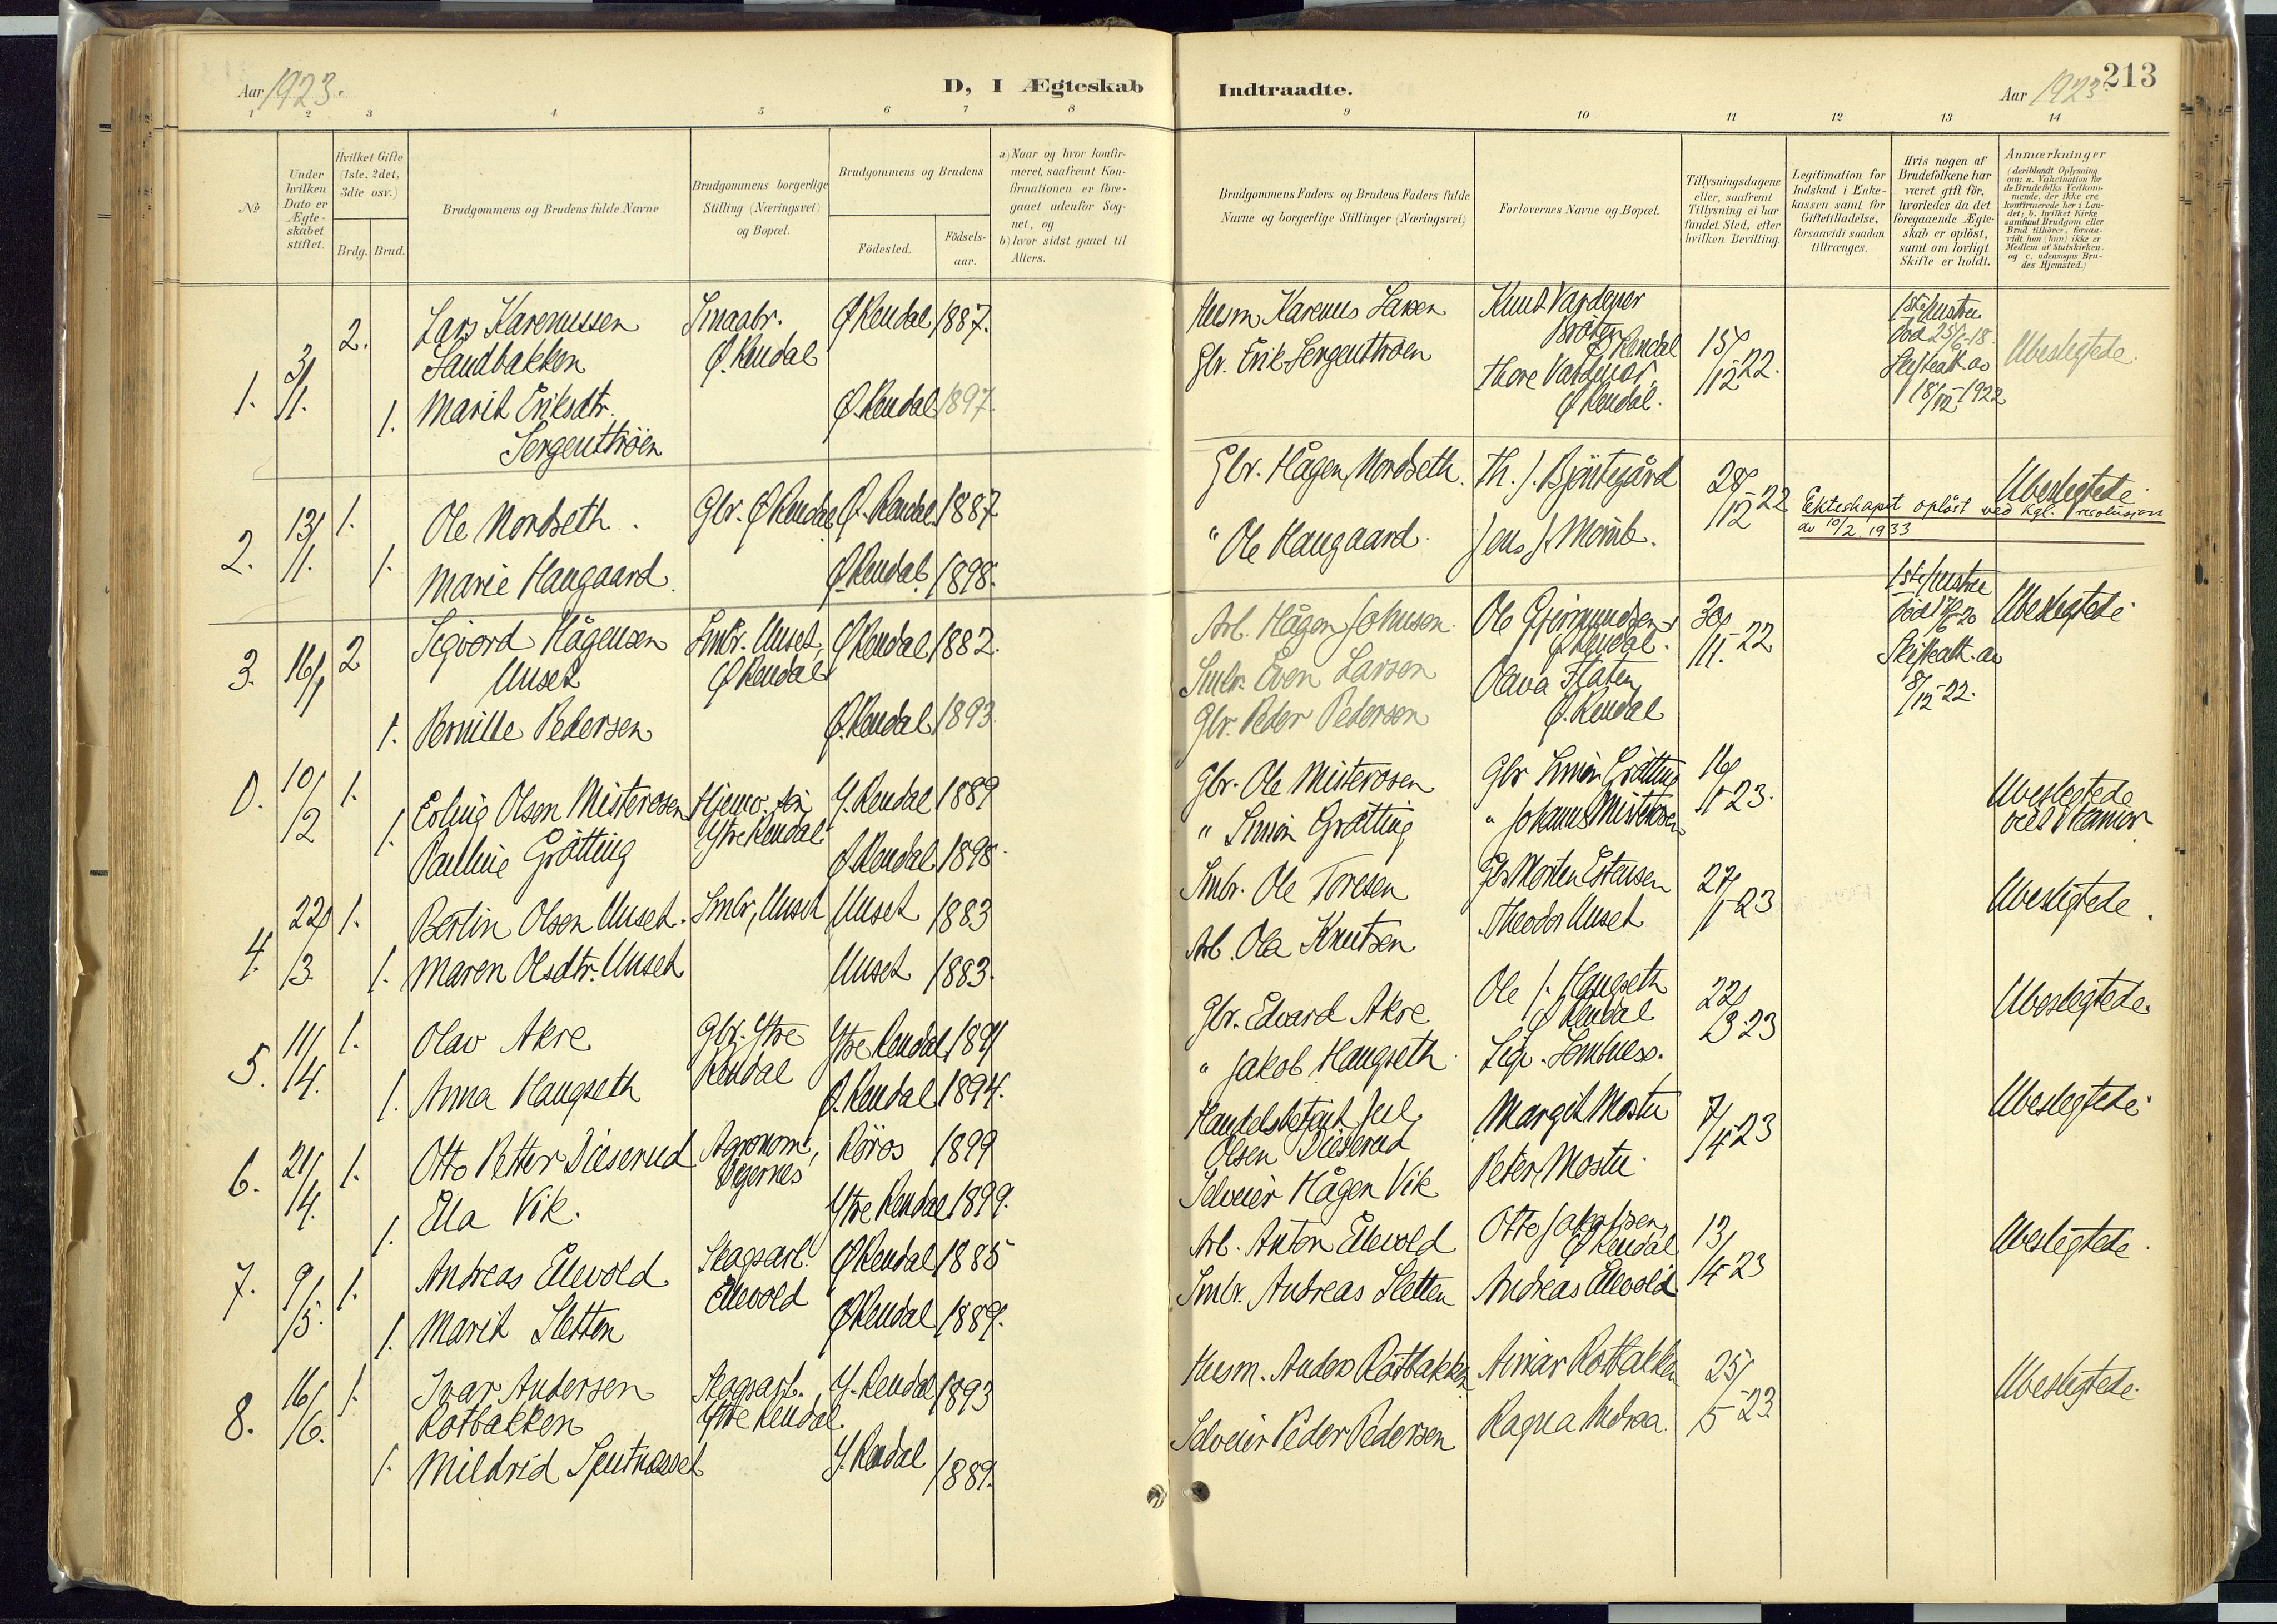 Aar 1923.
D, I Ægteskab
Indtraadte.
Aar 1923.
213
1 2 3 4 5 6 7 8 9 10 11 12 13 14
№
Under
hvilken
Dato er
Ægte-
skabet
stiftet.
Hvilket Gifte
(1ste, 2det,
3die osv.)
Brdg. Brud.
Brudgommens og Brudens fulde Navne
Brudgommens borgerlige
Stilling (Næringsvei)
og Bopæl.
Brudgommens og Brudens
Födested.
Födsels-
aar.
a) Naar og hvor konfir-
meret, saafremt Kon-
firmationen er fore-
gaaet udenfor Sog-
net, og
b) hvor sidst gaaet til
Alters.
Brudgommens Faders og Brudens Faders fulde
Navne og borgerlige Stillinger (Næringsvei)
Forlovernes Navne og Bopæl.
Tillysningsdagene
eller, saafremt
Tillysning ei har
fundet Sted, efter
hvilken Bevilling.
Legitimation for
Indskud i Enke-
kassen samt for
Giftetilladelse,
forsaavidt saadan
tiltrænges.
Hvis nogen af
Brudefolkene har
været gift för,
hvorledes da det
foregaaende Ægte-
skab er oplöst,
samt om lovligt
Skifte er holdt.
Anmærkninger
(deriblandt Oplysning
om: a. Vakcination for
de Brudefolks Vedkom-
mende, der ikke ere
konfirmerede her i Lan-
det; b. hvilket Kirke
samfund Brudgom eller
Brud tilhörer, forsaa-
vidt han (hun) ikke er
Medlem af Statskirken
og c. udensogns Bru-
des Hjemsted.)
1. 3/1. 2. Lars Karenussen Smaabr. Ø. Rendal 1887.
Sandbakken Ø. Rendal
1. Marit Eriksdtr. Ø. Rendal 1897.
Sergenttrøen
Husm. Karenus Larsen Knut Vardener
Bråten
Ø Rendal 15/12-22.
Gbr. Erik Sergenttrøen Thore
Ø Rendal.
1ste hustru
død 25/6-18.
Skifteatt. av
18/12 1922
Ubeslegtede.
2. 13/1. 1. Ole Nordseth. Gbr. Ø Rendal Ø. Rendal 1887
1. Marie Haugaard. Ø. Rendal. 1898.
Gbr. Hågen Nordseth. Th. J. Bjøntegård 28/12-22
" Ole Haugaard. Jens J.
Ubeslegtede.
Ekteskapet opløst ved kgl. resolusjon
av 10/2. 1933
3. 16/1 2 Sigvard Hågensen Smbr. Unset, Ø Rendal 1882.
Unset Ø Rendal
1. Pernille Pedersen Ø. Rendal 1893.
Arb. Hågen Johnsen. Ole Gjermundsen
Ø Rendal. 30/11.-22
Smbr. Even Larsen Olava Flaten
Gbr. Peder Pedersen Ø. Rendal
1ste hustru
død 17/6-20
Skifteatt. av
8/12-22.
Ubeslegtede
0. 10/2 1. Erling Olsen Misterosen Y. Rendal 1889
Ytre Rendal
1. Pauline Grøtting Ø Rendal 1898.
Gbr. Ole Misterosen Gbr Simon Grøtting 16/1-23.
" Simon Grøtting " Johannes Misterosen
Ubeslegtede
viet i Hamar.
4. 22/3. 1. Bertin Olsen Unset. Smbr, Unset Unset 1883
1. Maren Olsdtr. Unset Unset 1883.
Smbr. Ole Toresen Gbr Morten Estensen 27/1-23
Arb. Ola Knutsen Theodor Unset
Ubeslegtede.
5. 11/4. 1. Olav Akre Gbr. Ytre Ytre Rendal 1891
Rendal
1. Anna Haugseth Ø. Rendal 1894.
Gbr. Edvard Akre Ole J. Haugseth
Ø Rendal 22/3-23
" Jakob Haugseth.
Ubeslegtede.
6. 21/4. 1. Otto Petter Dieserud Agronom, Røros 1899
1. Ella Vik. Ytre Rendal 1899.
Handelsbetjent Jul. Margit Mostu 7/4-23
Olsen Dieserud
Selveier Hågen Vik Peter Mostu.
Ubeslegtede
7. 9/5. 1. Andreas Ellevold Skogsarb. Ø Rendal 1885
Ellevold
1. Marit Sletten Ø Rendal 1889.
Arb. Anton Ellevold Otto Jakobsen,
Ø Rendal 13/4-23
Smbr. Andreas Sletten Andreas Ellevold
Ubeslegtede.
8. 16/6. 1. Ivar Andersen Skogsarb. Y. Rendal 1893
Rotbakken Ytre Rendal.
1. Mildrid Y. Rendal 1889.
Husm. Anders Rotbakken Rotbakken 25/5-23.
Selveier Peder Pedersen Ragna
Ubeslegtede.